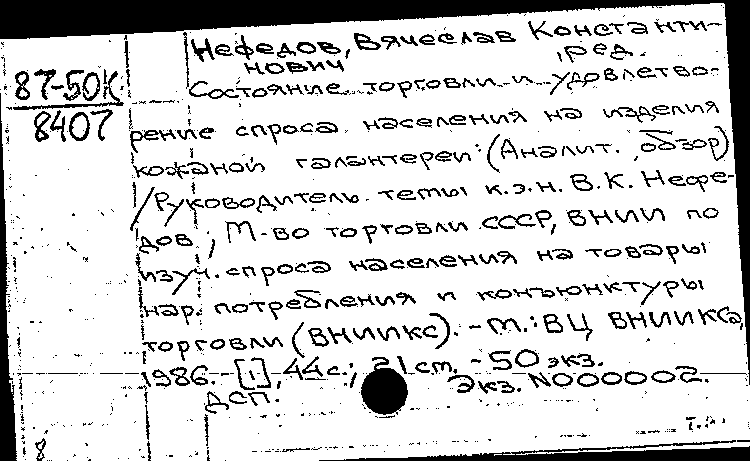 87-50К
8407
Нефедов, Вячеслав Константи-
нович, ред.
Состояние торговли и удовлетво-
рение спроса населения на изделия
кожаной галантереи: (Аналит. обзор)
/Руководитель темы к.э.н. В.К. Нефе-
дов; М-во торговли СССР, ВНИИ по
изуч. спроса населения на товары
нар. потребления и конъюнктуры
торговли (ВНИИКС). - М.: ВЦ ВНИИКСа,
1986. - [1], 44с.; 21 см. - 50 экз.
ДСП. Экз. N000002.
8